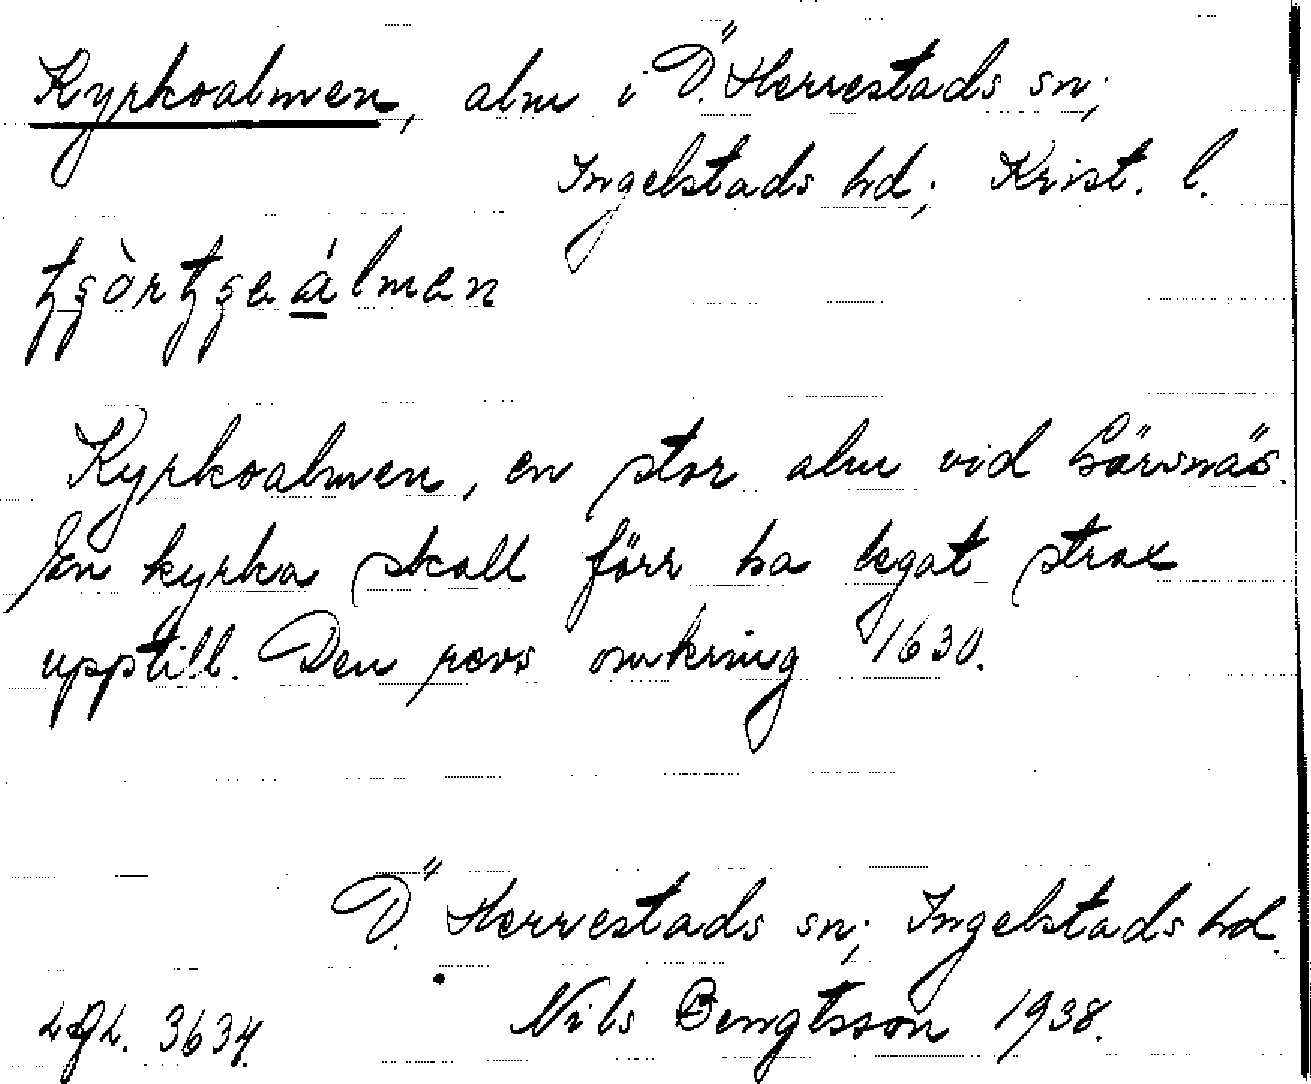 Kyrkoalmen, alm i Ö. Herrestads sn;
Ingelstads hd; Krist. l.
Kyrkoalmen, en stor alm vid Görsnäs.
En kyrka skall förr ha legat strax
upptill. Den revs omkring 1630.
Ö. Herrestads sn; Ingelstads hd.
Nils Bengtsson 1938.